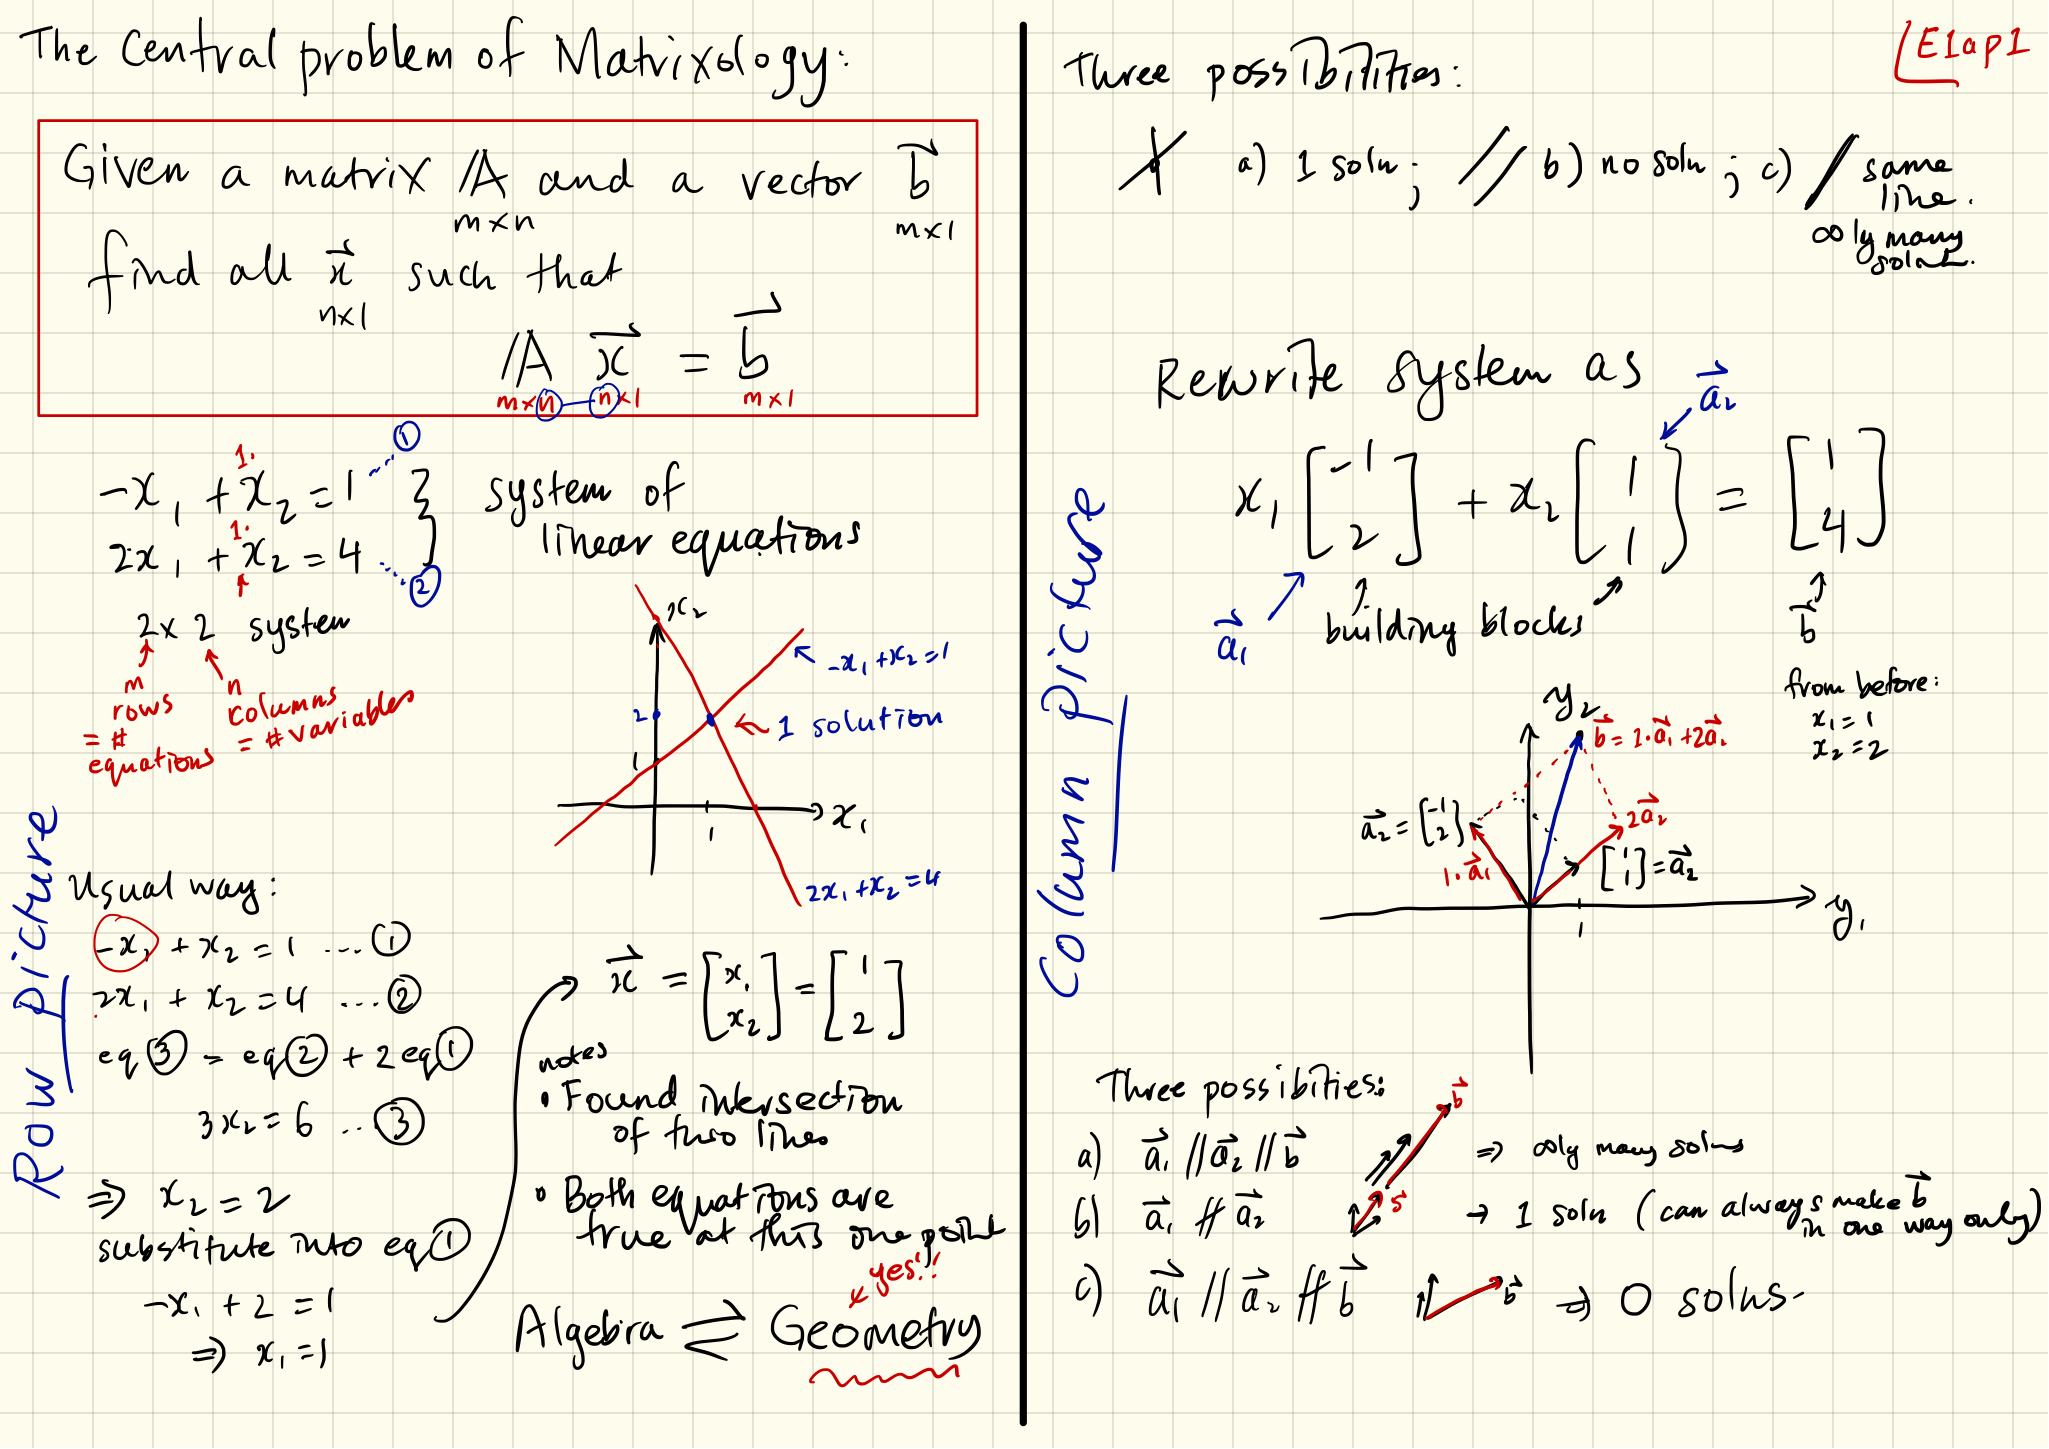 The Central problem of Matrixology:
Given a matrix A and a vector b⃗
m×n m×1
find all x⃗ such that
n×1
A x⃗ = b⃗
m×n n×1 m×1
①
1. 
-x₁ + x₂ = 1 } system of
1.
2x₁ + x₂ = 4 linear equations
②
2×2 system
m
rows
= #
equations
n
columns
= # variables
x₂
-x₁+x₂=1
2
1 solution
1
x₁
1
2x₁+x₂=4
Row picture
Usual way:
-x₁ + x₂ = 1 ... ①
2x₁ + x₂ = 4 ... ②
eq③ = eq② + 2eq①
3x₂ = 6 ... ③
⇒ x₂ = 2
substitute into eq①
-x₁ + 2 = 1
⇒ x₁ = 1
x⃗ = [x₁ x₂] = [1 2]
notes
• Found intersection
of two lines
• Both equations are
true at this one point
yes!!
Algebra ⇌ Geometry
E1ap1
Three possibilities:
a) 1 soln; // b) no soln; c) / same
line.
∞ly many
Rewrite system as
a⃗₂
x₁ [-1 2] + x₂ [1 1] = [1 4]
a⃗₁
building blocks
b⃗
Column picture
from before:
x₁ = 1
x₂ = 2
y₂
b⃗ = 1·a⃗₁ + 2a⃗₂
a⃗₂ = [-1 2]
2a⃗₂
1·a⃗₁
[1 1] = a⃗₂
y₁
1
Three possibities:
b⃗
a) a⃗₁ // a⃗₂ // b⃗ ⇒ ∞ly many solns
b) a⃗₁ ∦ a⃗₂ → 1 soln (can always make b⃗
in one way only)
c) a⃗₁ // a⃗₂ ∦ b⃗ b⃗ ⇒ 0 solns.